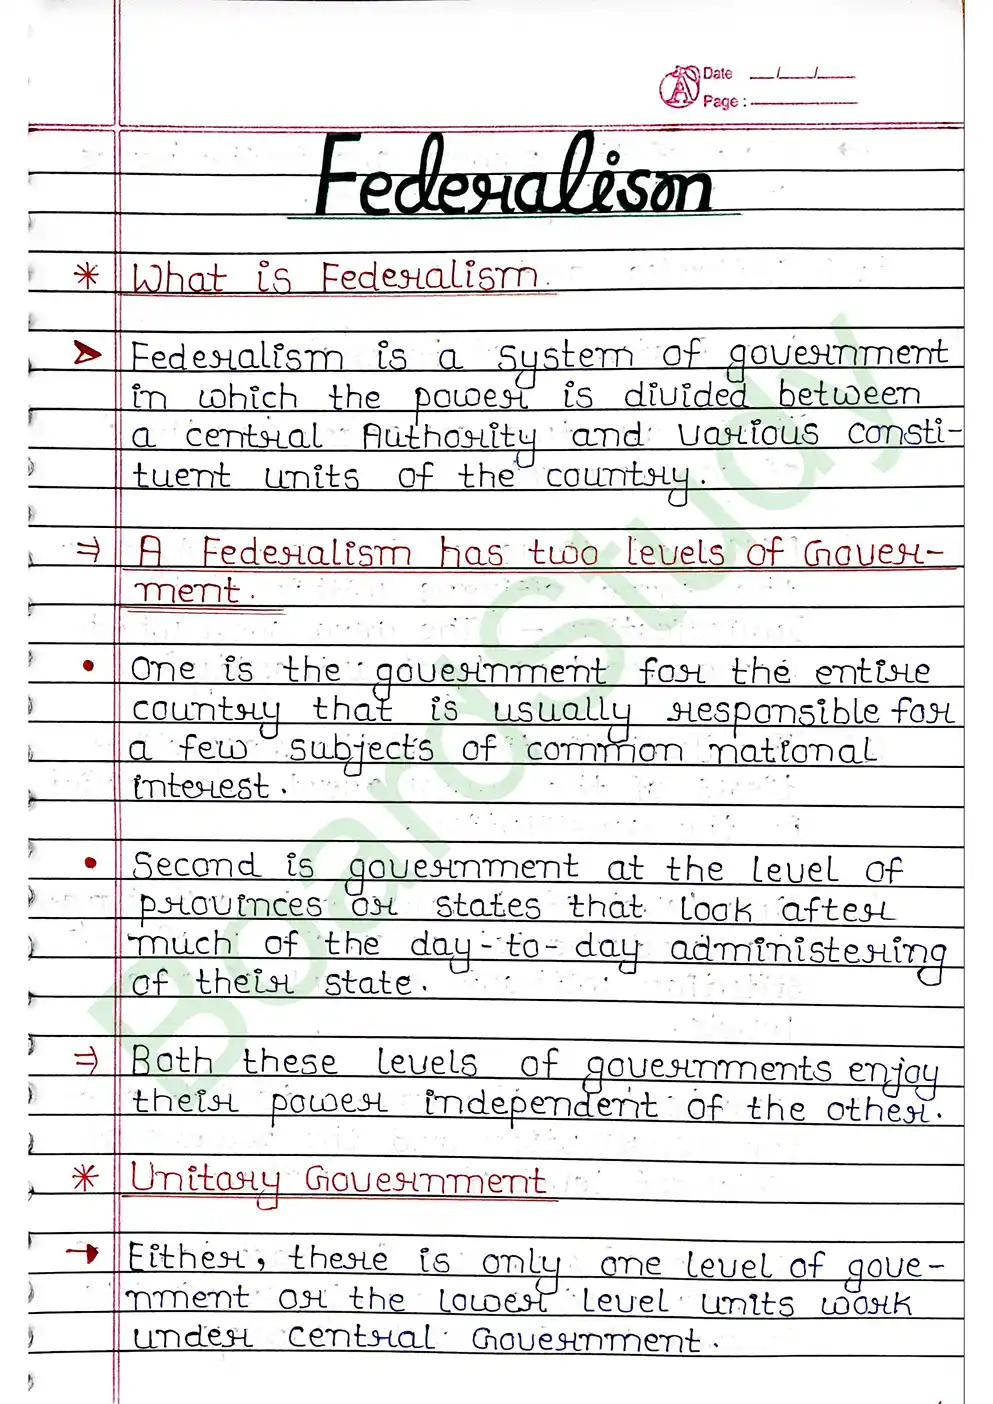 Date __/__/__
Page :
Federalism
* What is Federalism.
Federalism is a system of government
in which the power is divided between
a central Authority and various consti-
tuent units of the country.
⇒ A Federalism has two levels of Gover-
ment.
• One is the government for the entire
country that is usually responsible for
a few subjects of common national
interest.
• Second is government at the level of
provinces or states that look after
much of the day-to-day administering
of their state.
⇒ Both these levels of governments enjoy
their power independent of the other.
* Unitary Government
→ Either, there is only one level of gove-
rnment or the lower level units work
under central Government.
BoardStudy